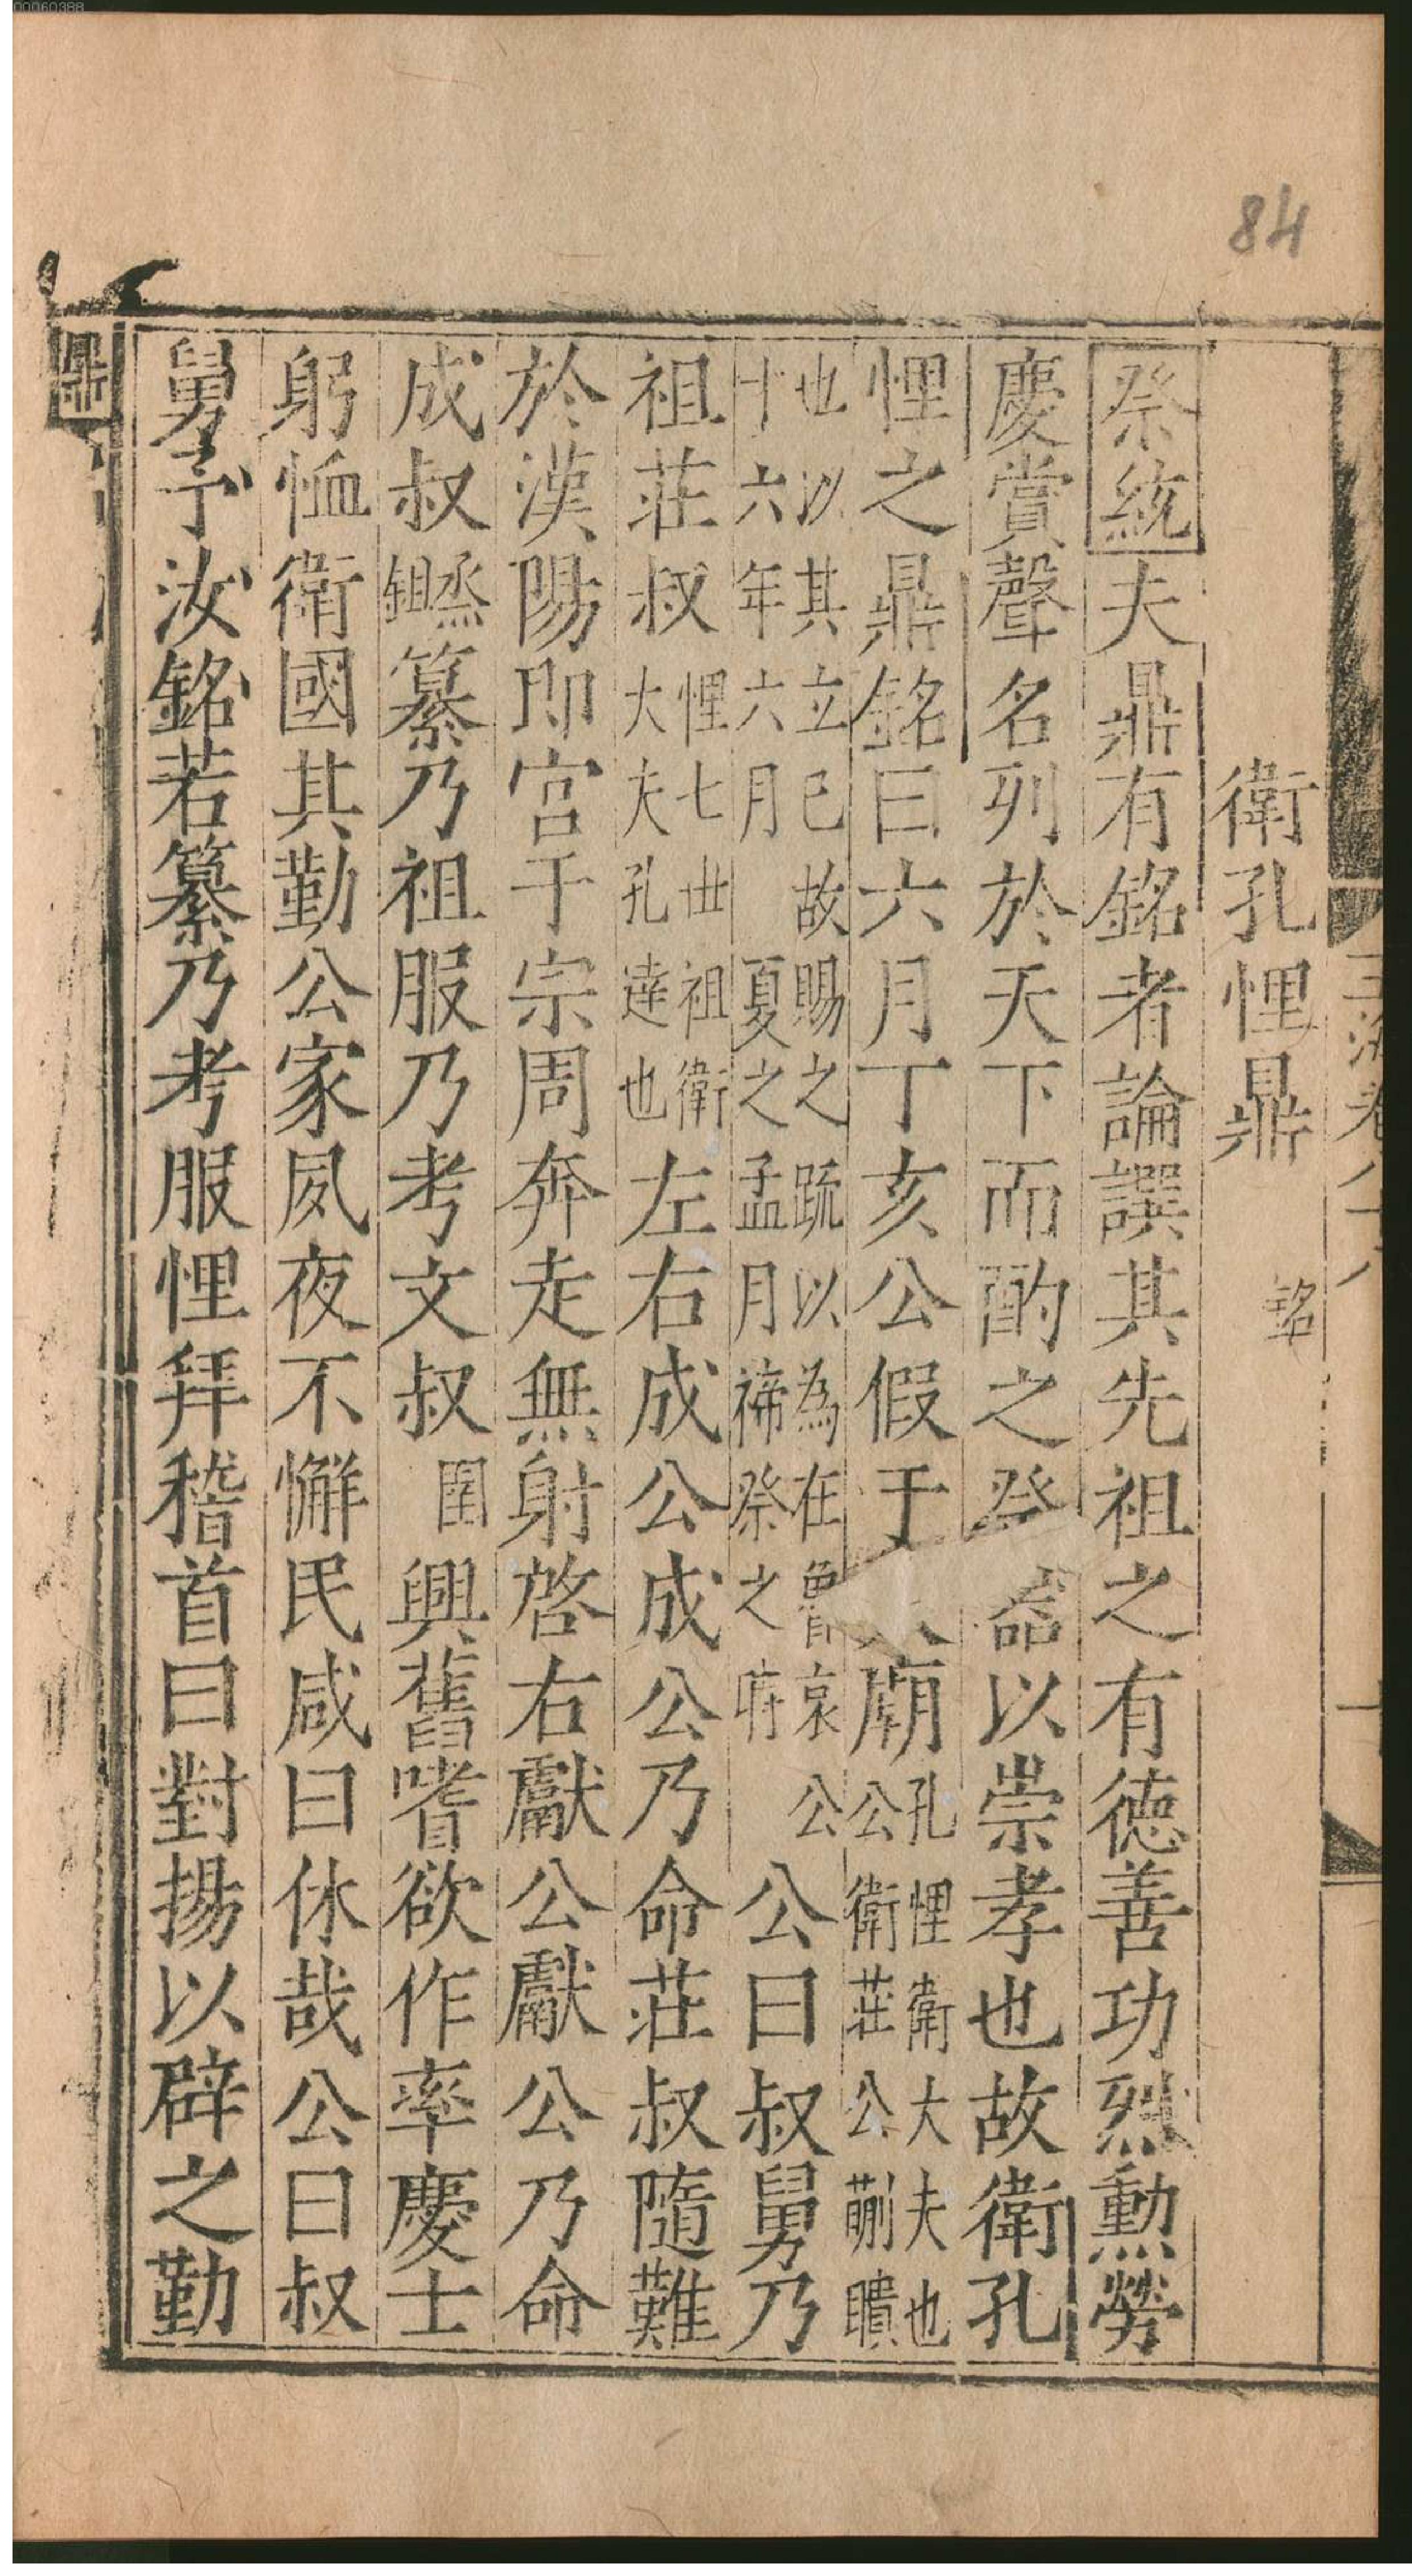 00060388
84
衛孔悝鼎 銘
祭統夫鼎有銘者論譔其先祖之有德善功烈勳勞
慶賞聲名列於天下而酌之祭器以崇孝也故衛孔
悝之鼎銘曰六月丁亥公假于廟孔悝衛大夫也公衛莊公蒯聵
也以其立已故賜之疏以為在魯哀公十六年六月夏之孟月禘祭之時公曰叔舅乃
祖莊叔悝七世祖衛大夫孔達也左右成公成公乃命莊叔隨難
於漢陽即宮于宗周奔走無射啓右獻公獻公乃命
成叔烝鉏纂乃祖服乃考文叔圉興舊嗜欲作率慶士
躬恤衛國其勤公家夙夜不懈民咸曰休哉公曰叔
舅予汝銘若纂乃考服悝拜稽首曰對揚以辟之勤
鼎